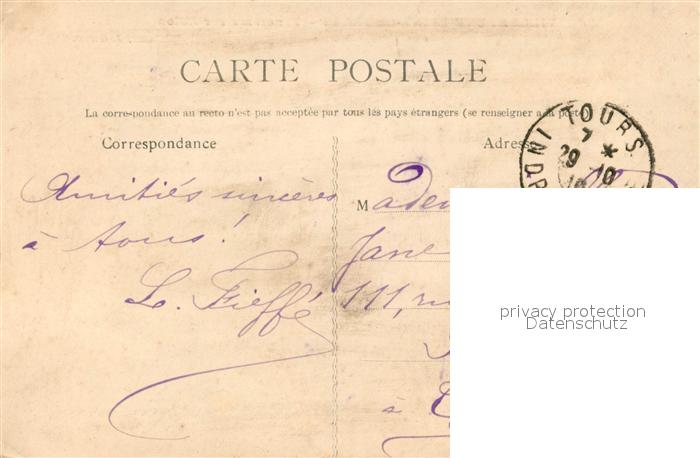 CARTE POSTALE
La correspondance au recto n'est pas acceptée par tous les pays étrangers (se renseigner à la poste)
Correspondance
Adresse
TOURS
7
29 10
Amitiés sincères
à tous !
L. Fieffé
Madem
Jane
111, ru
à
privacy protection
Datenschutz